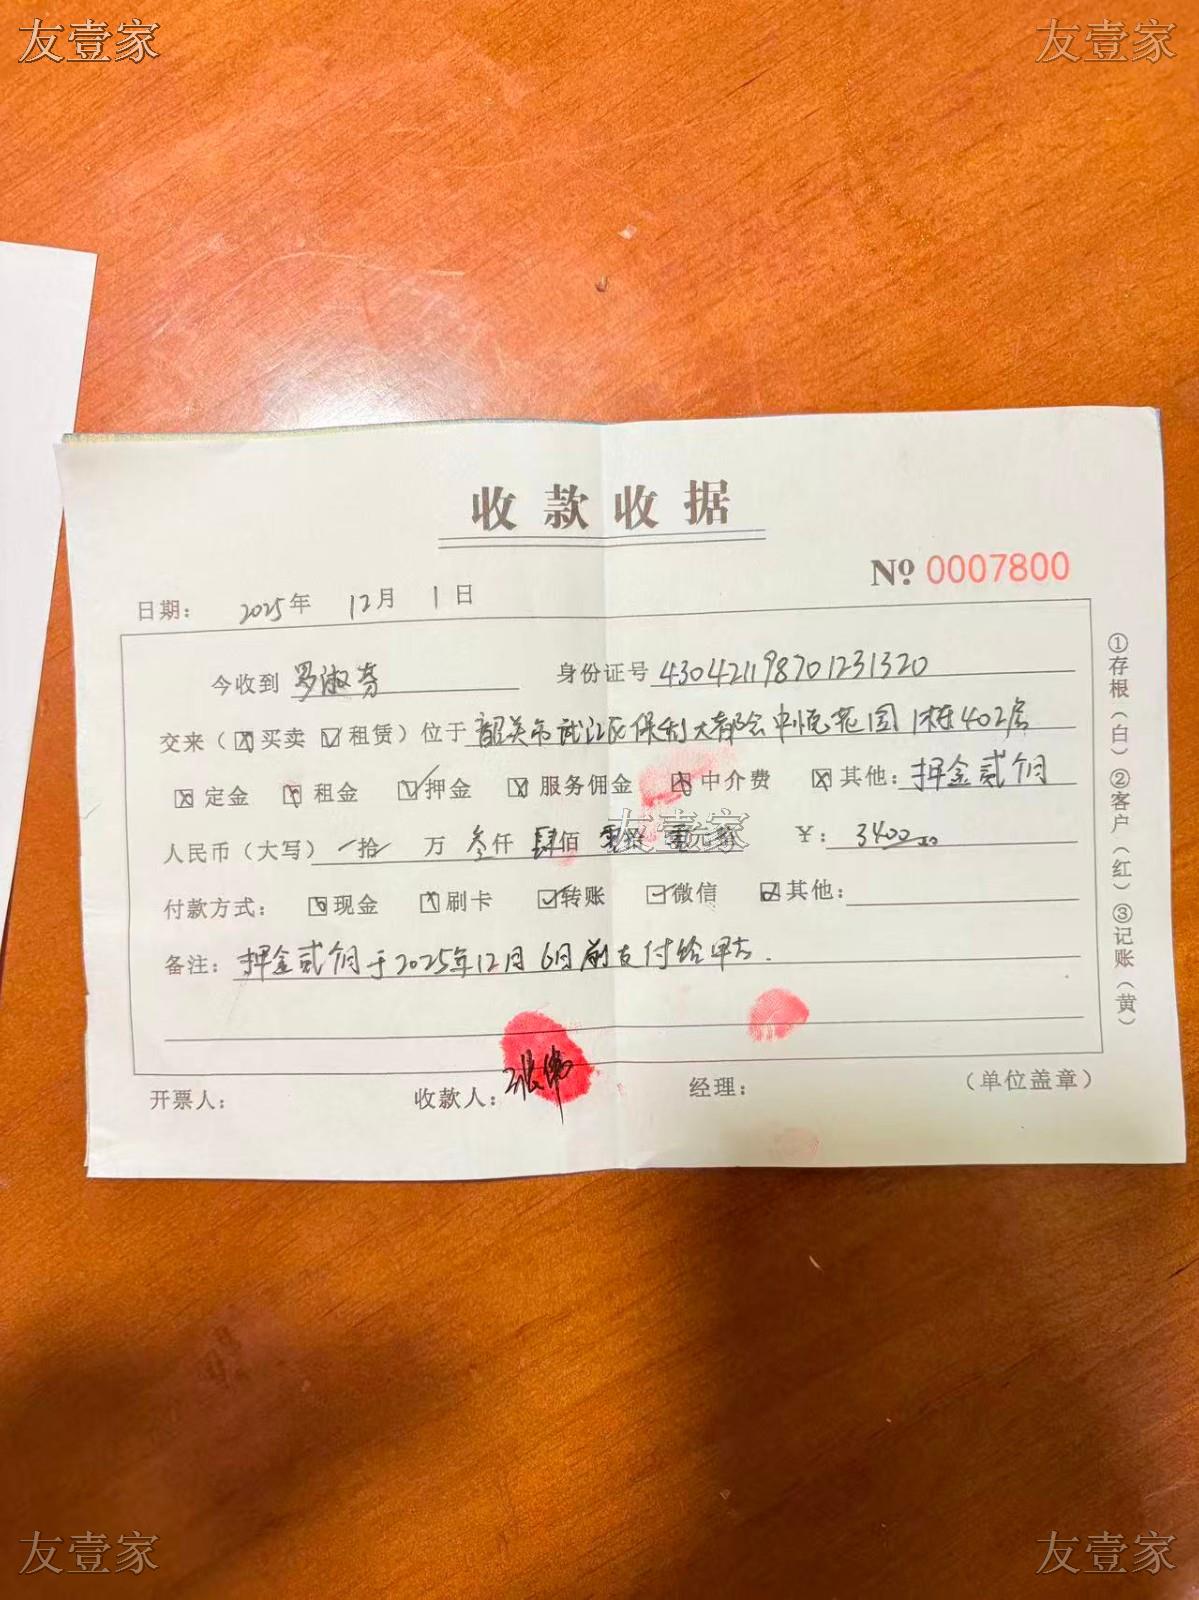 友壹家 友壹家
收款收据
Nº 0007800
日期: 2025年 12月 1日
今收到 罗淑芬 身份证号 430421198701231320
交来(☒买卖 ☑租赁)位于 韶关市武江区保利大都会中悦花园1栋402房
☒定金 ☒租金 ☑押金 ☒服务佣金 ☒中介费 ☒其他: 押金贰个月
人民币(大写) 拾 万 叁仟 肆佰 零拾 零元 ¥: 3400
友壹家
付款方式: ☒现金 ☒刷卡 ☑转账 ☑微信 ☑其他:
备注: 押金贰个月于2025年12月6日前支付给甲方.
开票人: 收款人: 张伟 经理: (单位盖章)
①存根(白)②客户(红)③记账(黄)
友壹家 友壹家